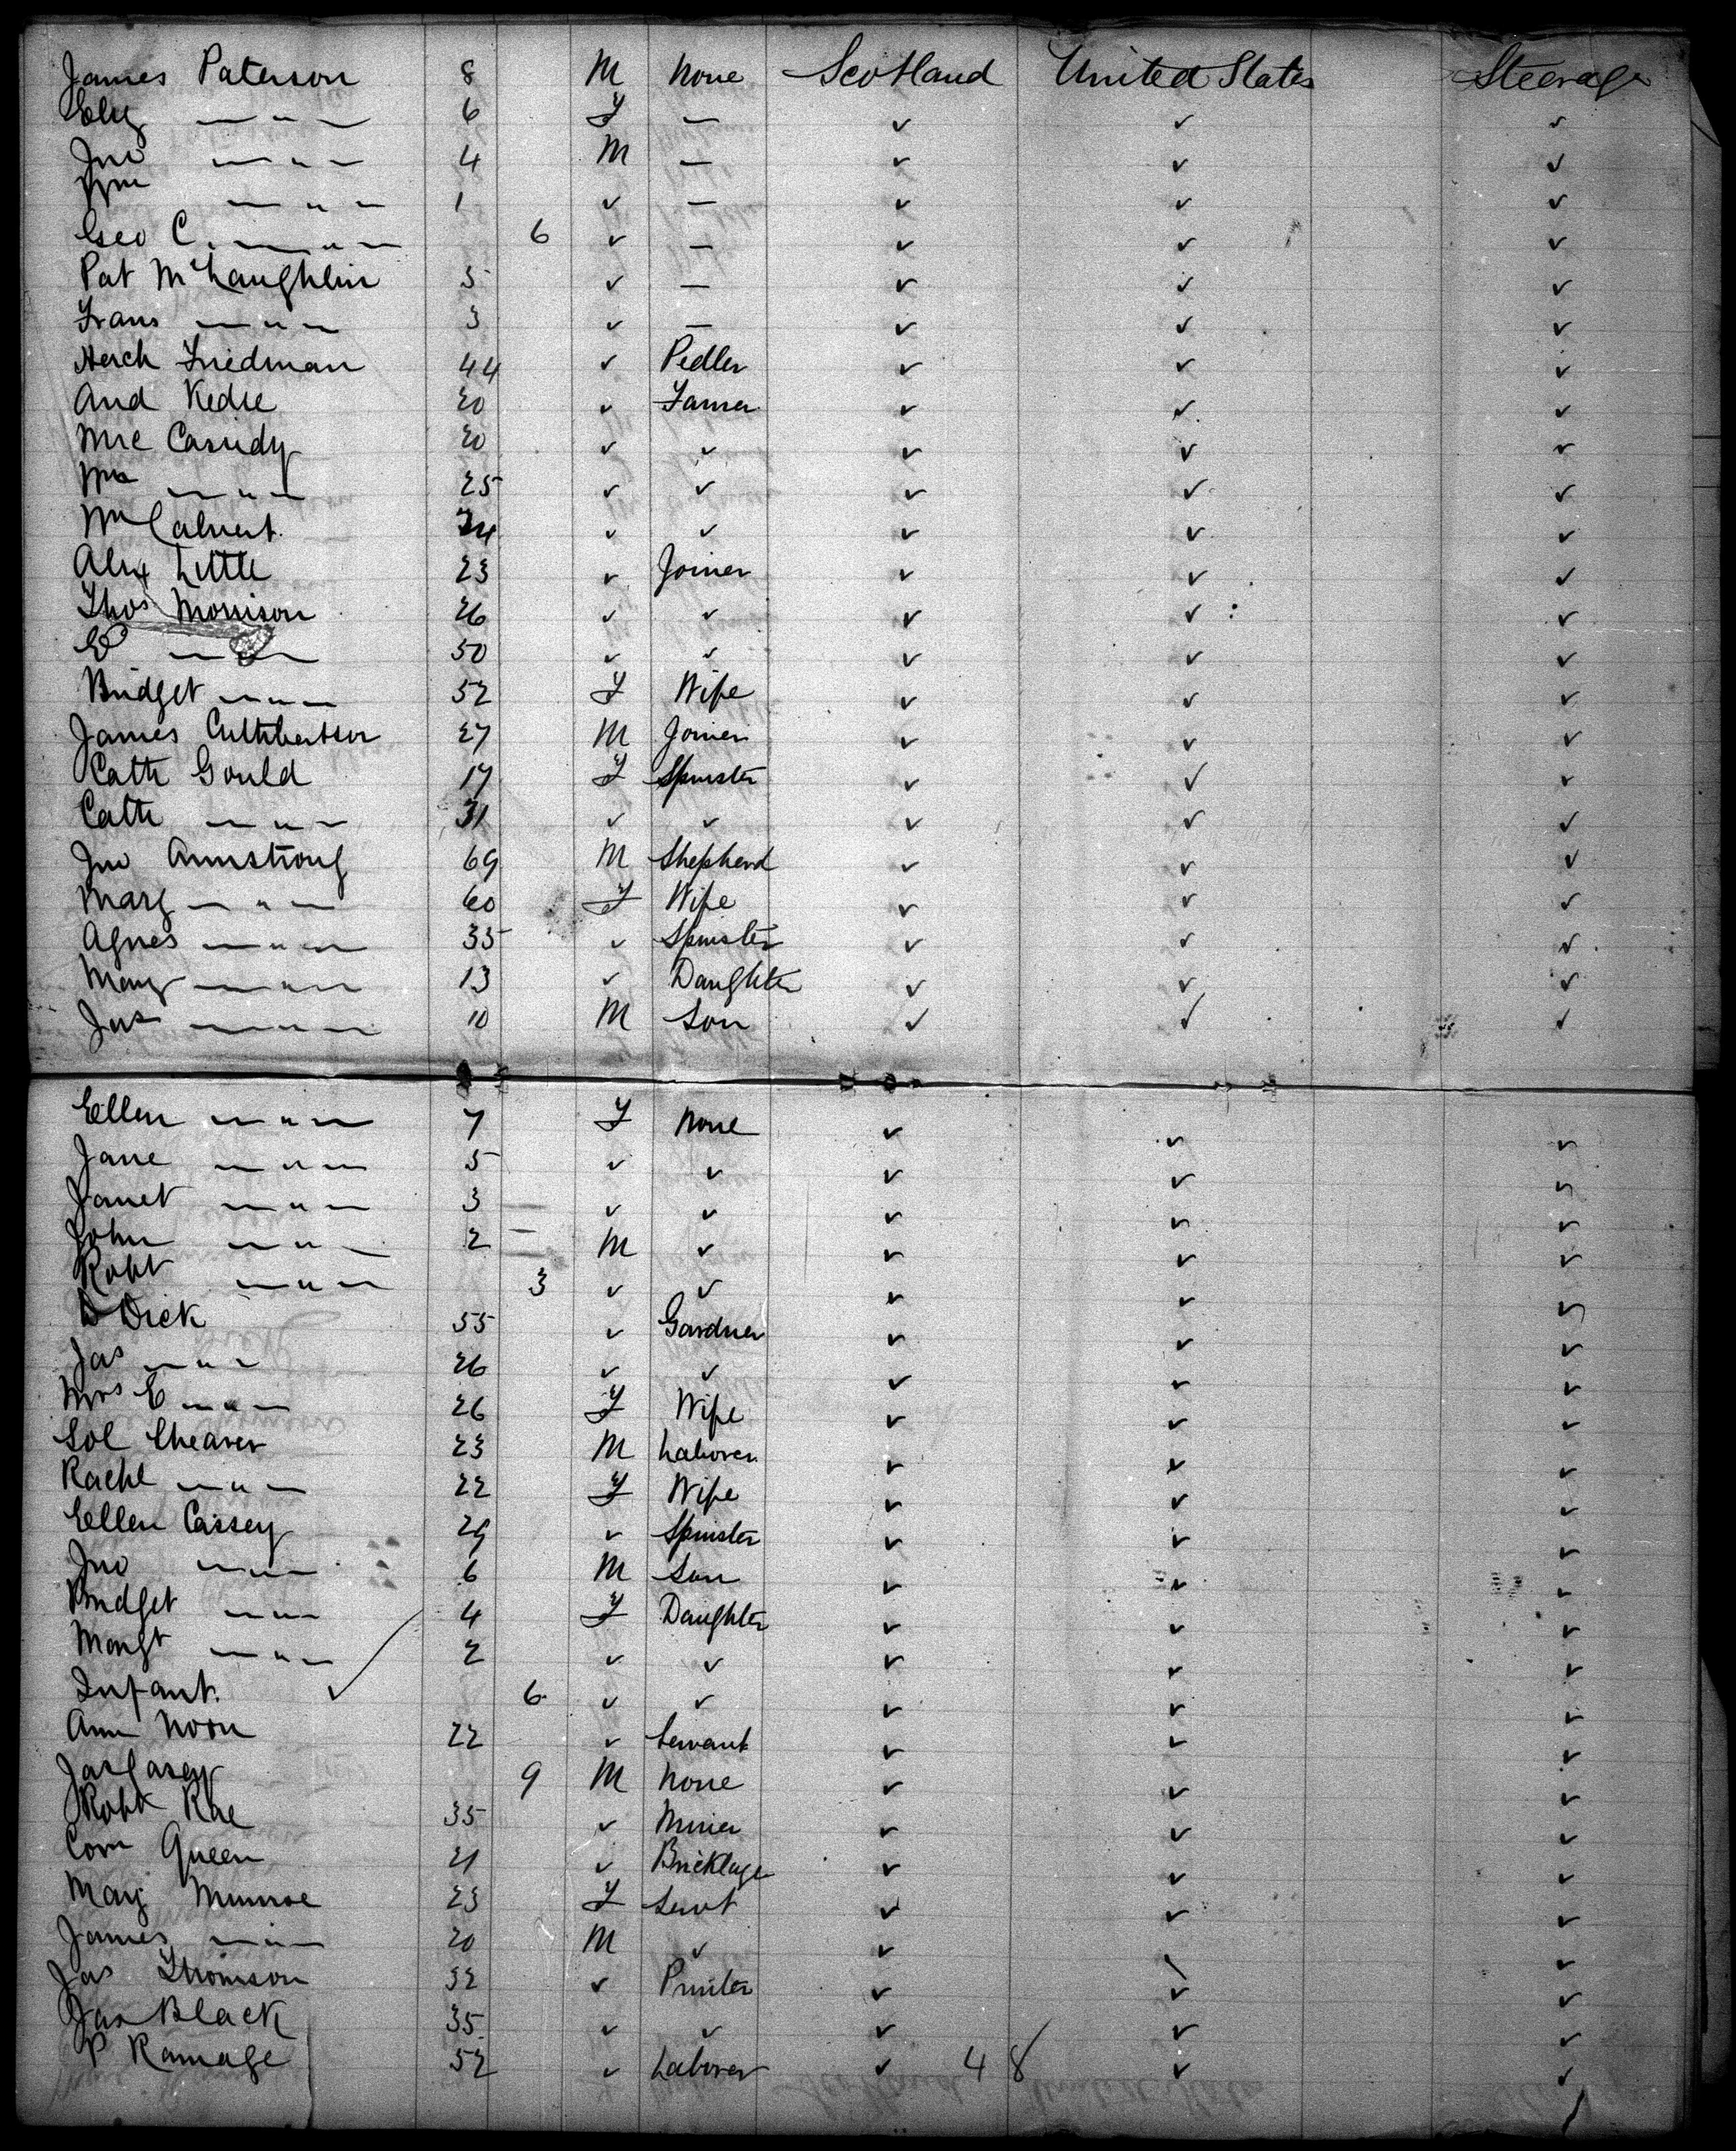 James Paterson 8 M None Scotland United States Steerage
Eliz — " — 6 F — ✓ ✓ ✓
Jno — " — 4 M — ✓ ✓ ✓
Wm — " — 1 ✓ — ✓ ✓ ✓
Geo C. — " — 6 ✓ — ✓ ✓ ✓
Pat McLaughlin 5 ✓ — ✓ ✓ ✓
Frans — " — 3 ✓ — ✓ ✓ ✓
Herch Friedman 44 ✓ Pedler ✓ ✓ ✓
And Kedie 20 ✓ Farmer ✓ ✓ ✓
Mic Cassidy 20 ✓ ✓ ✓ ✓ ✓
Wm — " — 25 ✓ ✓ ✓ ✓ ✓
Wm Calvert. 24 ✓ ✓ ✓ ✓ ✓
Alex Little 23 ✓ Joiner ✓ ✓ ✓
Thos Morrison 26 ✓ ✓ ✓ ✓ ✓
— " — 50 ✓ ✓ ✓ ✓ ✓
Bridget — " — 52 F Wife ✓ ✓ ✓
James Cuthbertson 27 M Joiner ✓ ✓ ✓
Cath Gould 17 F Spinster ✓ ✓ ✓
Cath — " — 31 ✓ ✓ ✓ ✓ ✓
Jno Armstrong 69 M Shepherd ✓ ✓ ✓
Marg — " — 60 F Wife ✓ ✓ ✓
Agnes — " — 35 ✓ Spinster ✓ ✓ ✓
Mary — " — 13 ✓ Daughter ✓ ✓ ✓
Jas — " — 10 M Son ✓ ✓ ✓
Ellen — " — 7 F None ✓ ✓ ✓
Jane — " — 5 ✓ ✓ ✓ ✓ ✓
Janet — " — 3 ✓ ✓ ✓ ✓ ✓
John — " — 2 M ✓ ✓ ✓ ✓
Robt — " — 3 ✓ ✓ ✓ ✓ ✓
D Dick 55 ✓ Gardner ✓ ✓ ✓
Jas — " — 26 ✓ ✓ ✓ ✓ ✓
Mrs E — " — 26 F Wife ✓ ✓ ✓
Sol Cheaver 23 M Laborer ✓ ✓ ✓
Rachl — " — 22 F Wife ✓ ✓ ✓
Ellen Cassey 29 ✓ Spinster ✓ ✓ ✓
Jno — " — 6 M Son ✓ ✓ ✓
Bridget — " — 4 F Daughter ✓ ✓ ✓
Margt — " — 2 ✓ ✓ ✓ ✓ ✓
Infant. ✓ 6 ✓ ✓ ✓ ✓ ✓
Ann Noon 22 ✓ Servant ✓ ✓ ✓
Jas Casey 9 M None ✓ ✓ ✓
Robt Rae 35 ✓ Miner ✓ ✓ ✓
Corn Queen 21 ✓ Bricklayer ✓ ✓ ✓
Marg Munroe 23 F Servt ✓ ✓ ✓
James — " — 20 M ✓ ✓ ✓ ✓
Jas Thomson 32 ✓ Printer ✓ ✓ ✓
Jas Black 35 ✓ ✓ ✓ ✓ ✓
P Ramage 52 ✓ Laborer ✓ 48 ✓ ✓